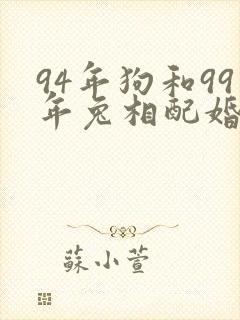 94年狗和99
年兔相配婚
蘇小萱